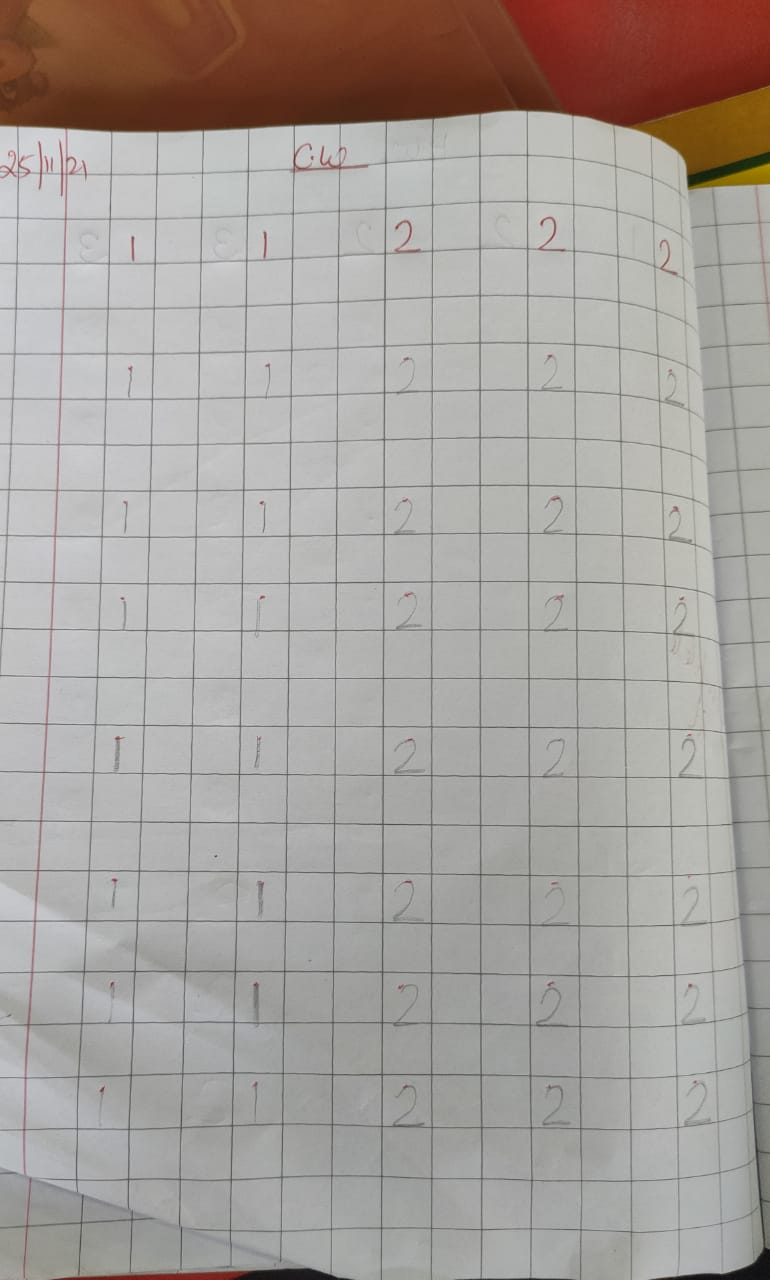 25/11/21 C.W
1 1 2 2 2
1 1 2 2 2
1 1 2 2 2
1 1 2 2 2
1 1 2 2 2
1 1 2 2 2
1 1 2 2 2
1 1 2 2 2